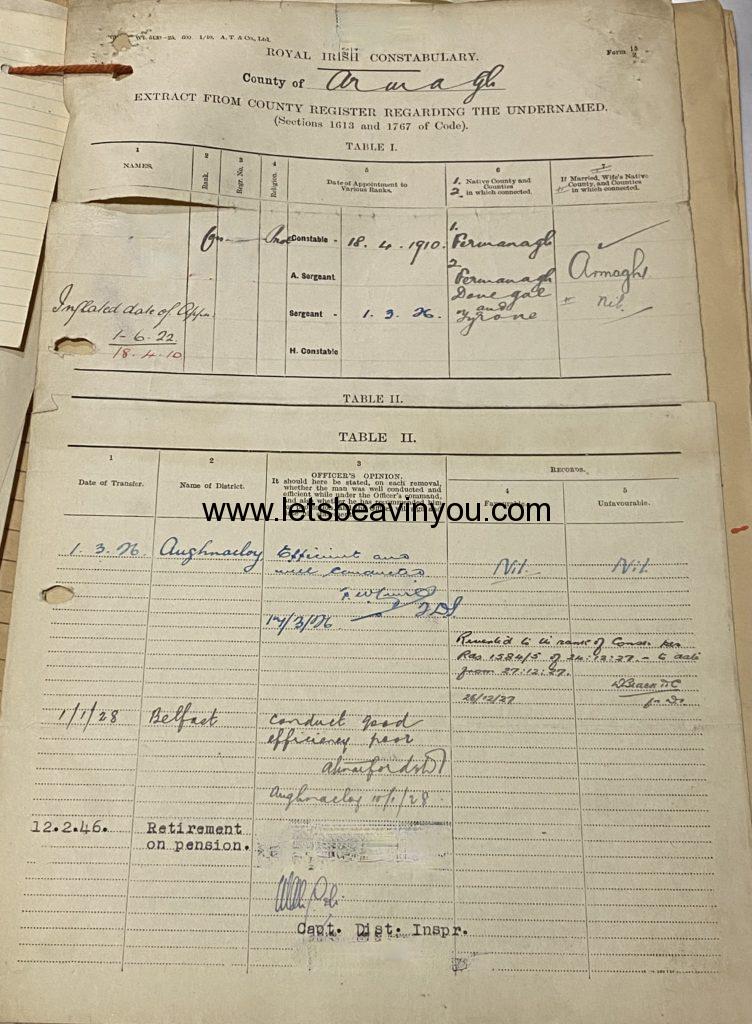 5130-25. 500. 1/10. A. T. & Co., Ltd.
Form 15/2
ROYAL IRISH CONSTABULARY.
County of Armagh
EXTRACT FROM COUNTY REGISTER REGARDING THE UNDERNAMED.
(Sections 1613 and 1767 of Code).
TABLE I.
1 2 3 4 5 6 7
NAMES.
Rank.
Regr. No.
Religion.
Date of Appointment to
Various Ranks.
1. Native County and
2. Counties
in which connected.
If Married, Wife's Native
County, and Counties
in which connected.
Constable - 18. 4. 1910.
A. Sergeant
Sergeant - 1. 3. 26.
H. Constable
1.
Fermanagh
2.
Fermanagh
Donegal
and
Tyrone
Armagh
Nil.
Inflated date of Appn.
1-6.22
18.4.10
TABLE II.
TABLE II.
1 2 3
Date of Transfer.
Name of District.
OFFICER'S OPINION.
It should here be stated, on each removal,
whether the man was well conducted and
efficient while under the Officer's command,
RECORDS.
4 5
Favourable.
Unfavourable.
www.letsbeavinyou.com
1. 3. 26. Aughnacloy Efficient and
well conducted
Nil. Nil.
DI
17/3/26
Reverted to the rank of Cons. per
RO 1584/5 of 24:12:27. - to date
from 27:12:27.
26/12/27
for DI
1/1/28 Belfast Conduct good
efficiency poor
Aughnacloy 10/1/28.
12.2.46. Retirement
on pension.
Capt. Dist. Inspr.